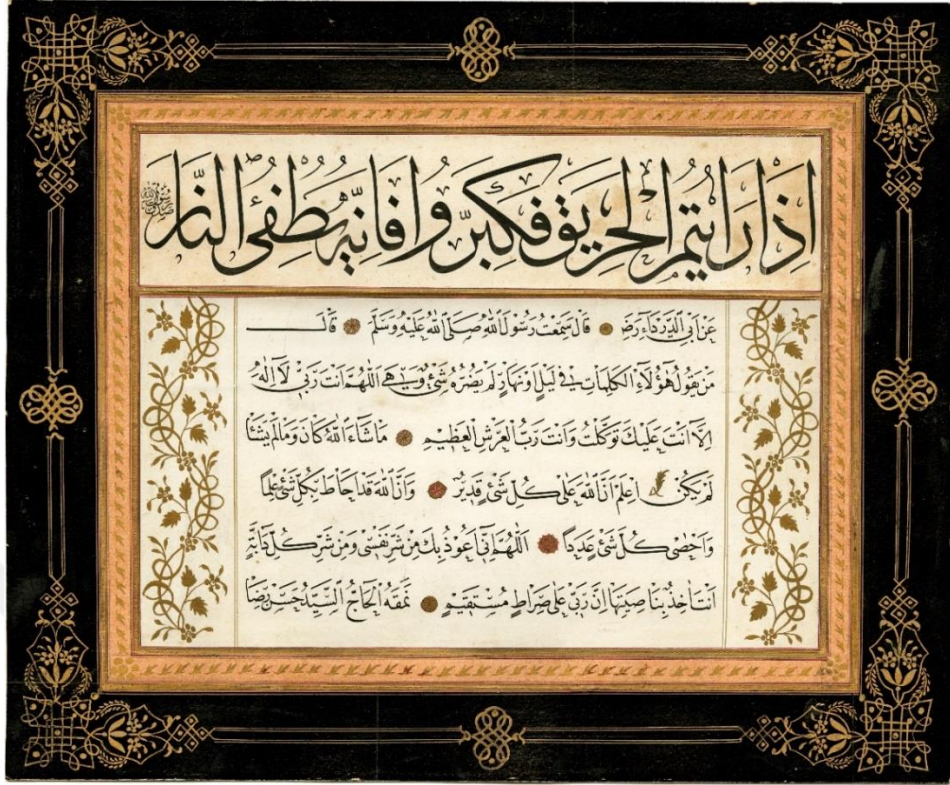 اِذَا رَاَيْتُمُ الْحَرِيقَ فَكَبِّرُوا فَاِنَّهُ يُطْفِئُ النَّارَ
عَنْ اَبِى الدَّرْدَاءِ رَضِ قَالَ سَمِعْتُ رَسُولَ اللهِ صَلَّى اللهُ عَلَيْهِ وَسَلَّمَ قَالَ
مَنْ يَقُولُ هٰؤُلَاءِ الْكَلِمَاتِ فِى لَيْلٍ اَوْ نَهَارٍ لَمْ يَضُرَّهُ شَىْءٌ وَهِىَ اَللّٰهُمَّ اَنْتَ رَبِّى لَا اِلٰهَ
اِلَّا اَنْتَ عَلَيْكَ تَوَكَّلْتُ وَاَنْتَ رَبُّ الْعَرْشِ الْعَظِيمِ مَا شَاءَ اللهُ كَانَ وَمَا لَمْ يَشَأْ
لَمْ يَكُنْ اِعْلَمْ اَنَّ اللهَ عَلٰى كُلِّ شَىْءٍ قَدِيرٌ وَاَنَّ اللهَ قَدْ اَحَاطَ بِكُلِّ شَىْءٍ عِلْمًا
وَاَحْصٰى كُلَّ شَىْءٍ عَدَدًا اَللّٰهُمَّ اِنِّى اَعُوذُ بِكَ مِنْ شَرِّ نَفْسِى وَمِنْ شَرِّ كُلِّ دَابَّةٍ
اَنْتَ اٰخِذٌ بِنَاصِيَتِهَا اِنَّ رَبِّى عَلٰى صِرَاطٍ مُسْتَقِيمٍ نَمَقَهُ الْحَاجُّ السَّيِّدُ حَسَنْ رِضَا